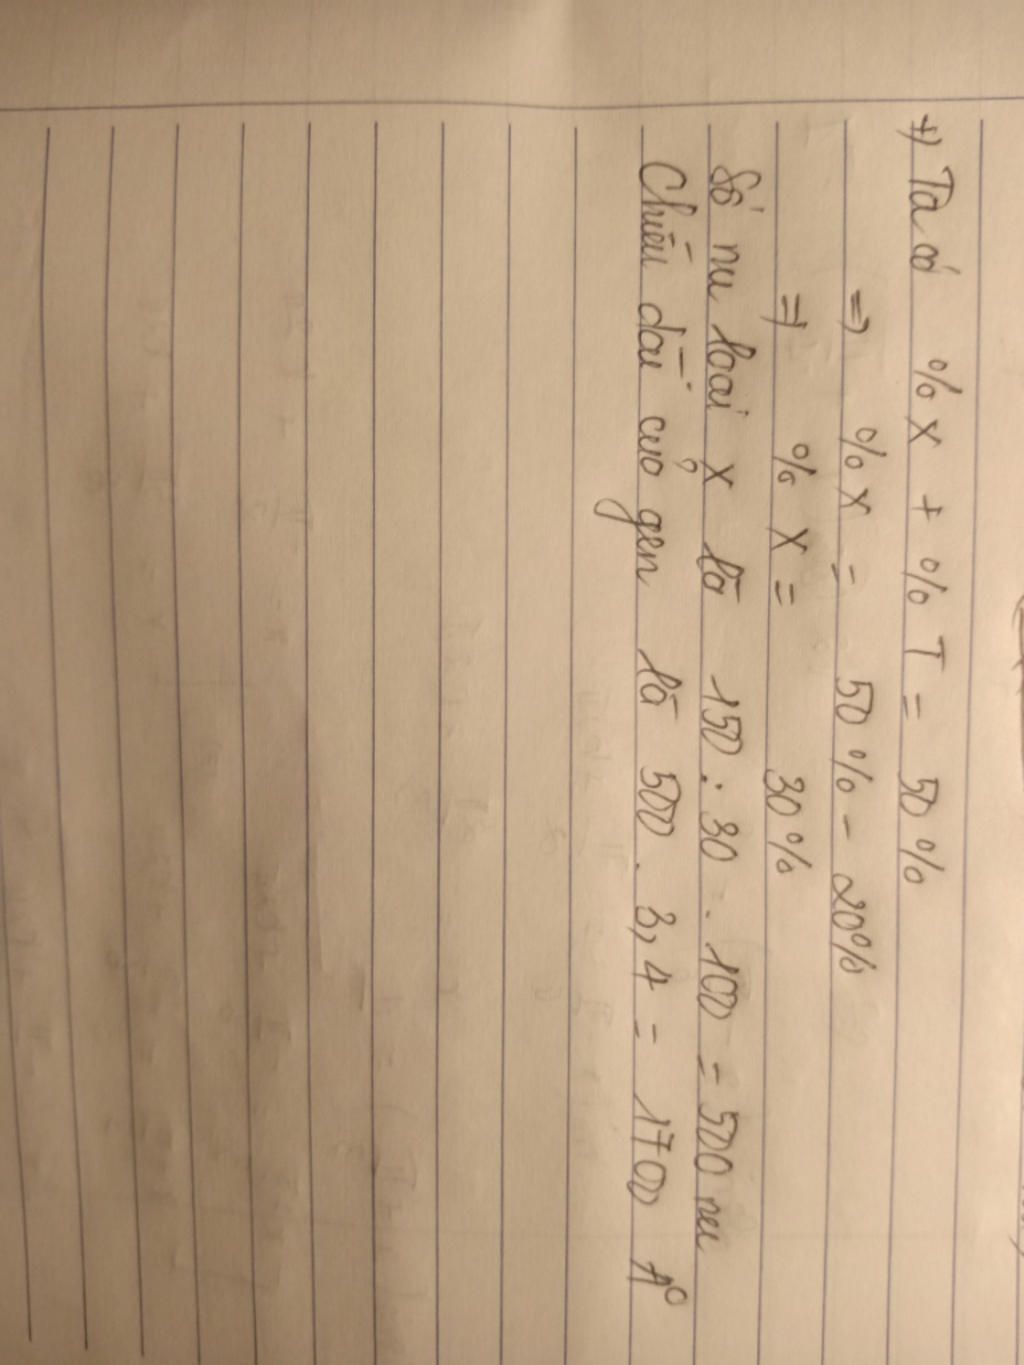 +) Ta có %X + %T = 50%
=) %X = 50% - 20%
=) %X = 30%
Số nu loại X là 150 : 30 . 100 = 500 nu
Chiều dài của gen là 500 . 3,4 = 1700 A⁰